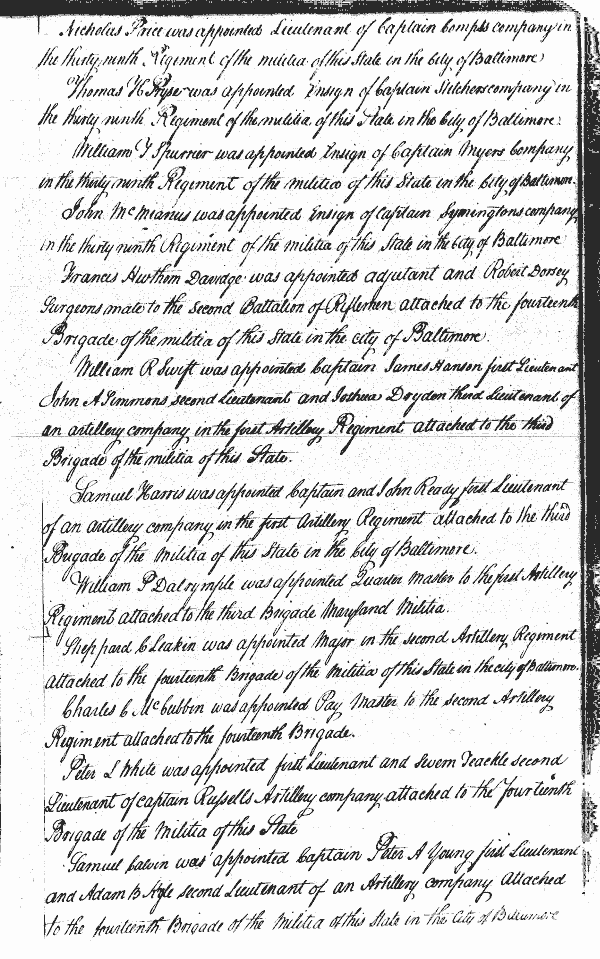 Nicholas Price was appointed Lieutenant of Captain Comp's company in
the thirty ninth Regiment of the militia of this State in the city of Baltimore
Thomas H Pryse was appointed Ensign of Captain Stechers company in
the thirty ninth Regiment of the militia of this State in the City of Baltimore
William Y Spurrier was appointed Ensign of Captain Myers Company
in the thirty ninth Regiment of the militia of this State in the City of Baltimore.
John McManus was appointed Ensign of Captain Symingtons company
in the thirty ninth Regiment of the militia of this State in the City of Baltimore
Francis Hawthorn Davidge was appointed adjutant and Robert Dorsey
Surgeons mate to the second Battalion of Riflemen attached to the fourteenth
Brigade of the militia of this State in the city of Baltimore
William R Swift was appointed Captain James Hanson first Lieutenant
John A Simmons second Lieutenant and Joshua Dryden third Lieutenant of
an artillery company in the first Artillery Regiment attached to the third
Brigade of the militia of this State.
Samuel Harris was appointed Captain and John Ready first Lieutenant
of an artillery company in the first Artillery Regiment attached to the third
Brigade of the Militia of this State in the City of Baltimore.
William P Dalrymple was appointed Quarter Master to the first Artillery
Regiment attached to the third Brigade Maryland Militia.
Sheppard C Leakin was appointed Major in the second Artillery Regiment
attached to the fourteenth Brigade of the Militia of this State in the city of Baltimore.
Charles C McCubbin was appointed Pay Master to the second Artillery
Regiment attached to the fourteenth Brigade.
Peter L White was appointed first Lieutenant and Severn Teackle second
Lieutenant of captain Russells Artillery company attached to the fourteenth
Brigade of the Militia of this State
Samuel was appointed Captain Peter A Young first Lieutenant
and Adam B Kyle second Lieutenant of an Artillery company attached
to the fourteenth Brigade of the Militia of this State in the City of Baltimore